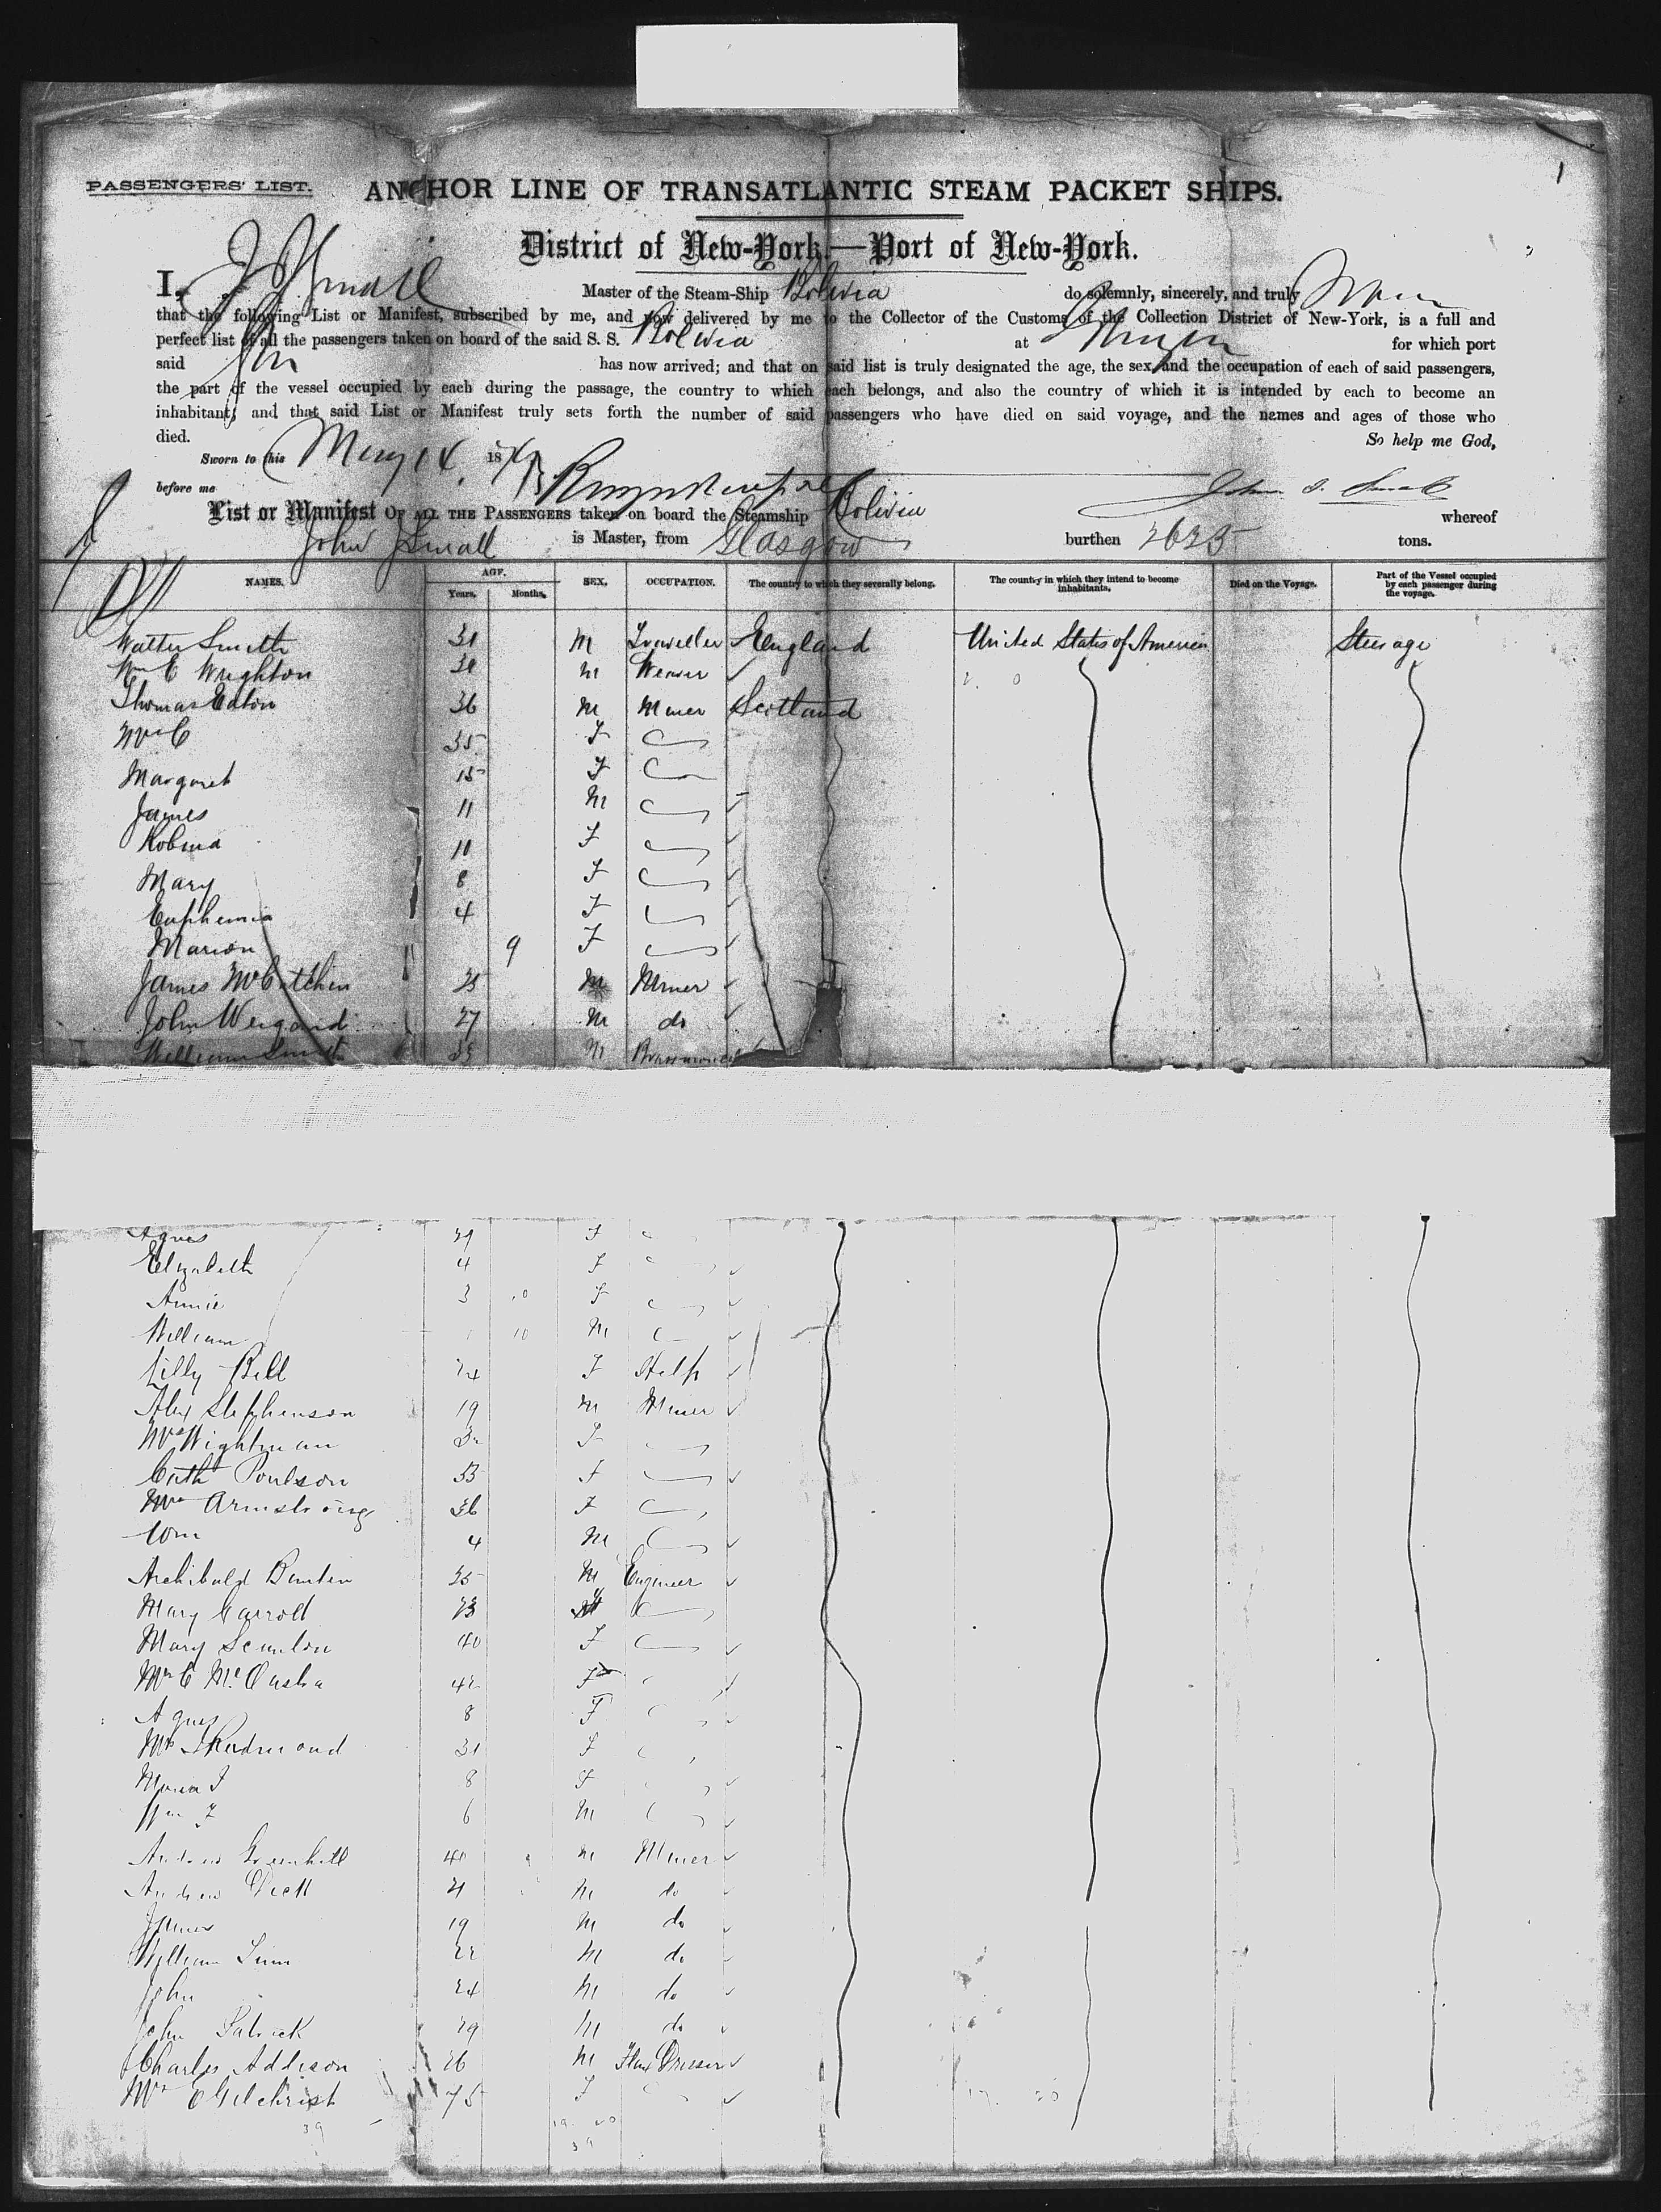 1
PASSENGERS' LIST.
ANCHOR LINE OF TRANSATLANTIC STEAM PACKET SHIPS.
District of New-York.—Port of New-York.
I, J Small Master of the Steam-Ship Bolivia do solemnly, sincerely, and truly
that the following List or Manifest, subscribed by me, and now delivered by me to the Collector of the Customs of the Collection District of New-York, is a full and
perfect list of all the passengers taken on board of the said S. S. Bolivia at for which port
said has now arrived; and that on said list is truly designated the age, the sex, and the occupation of each of said passengers,
the part of the vessel occupied by each during the passage, the country to which each belongs, and also the country of which it is intended by each to become an
inhabitant; and that said List or Manifest truly sets forth the number of said passengers who have died on said voyage, and the names and ages of those who
died. So help me God,
Sworn to this May 14 187
before me
List or Manifest OF ALL THE PASSENGERS taken on board the Steamship Bolivia whereof
John Small is Master, from Glasgow burthen 2625 tons.
NAMES. AGE. Years. Months. SEX. OCCUPATION. The country to which they severally belong. The country in which they intend to become inhabitants. Died on the Voyage. Part of the Vessel occupied by each passenger during the voyage.
Walter Smith 31 M Traveller England United States of America Steerage
Wm C Wrighton M Weaver
Thomas Eaton 36 M Miner Scotland
Mrs C 35 F
Margaret 15 F
James 11 M
Robina 10 F
Mary 8 F
Euphemia 4 F
Marion 9 F
James McCutchin 25 M Miner
John Weigand 27 M do
William Smith M
Agnes 29 F
Elizabeth 4 F
Annie 3 10 F
William 10 M
Lilly Bell 24 F Help
Alex Stephenson 19 M Miner
Mrs Wightman F
Cath Poulson F
Mrs Armstrong 36 F
Wm 4 M
Archibald Buntin 35 M Engineer
Mary Carroll 23
Mary Scanlon 40 F
Mrs C 42 F
Agnes 8 F
Mrs Redmond 31 F
Maria J 8 F
Wm J 6 M
Andrew Greenhill 40 M Miner
Andrew Dick 21 M do
James 19 M do
William 22 M do
John 24 M do
John Patrick 29 M do
Charles Addison 26 M Flax Dresser
Mrs C Gilchrist 75 F
39 19 20
39